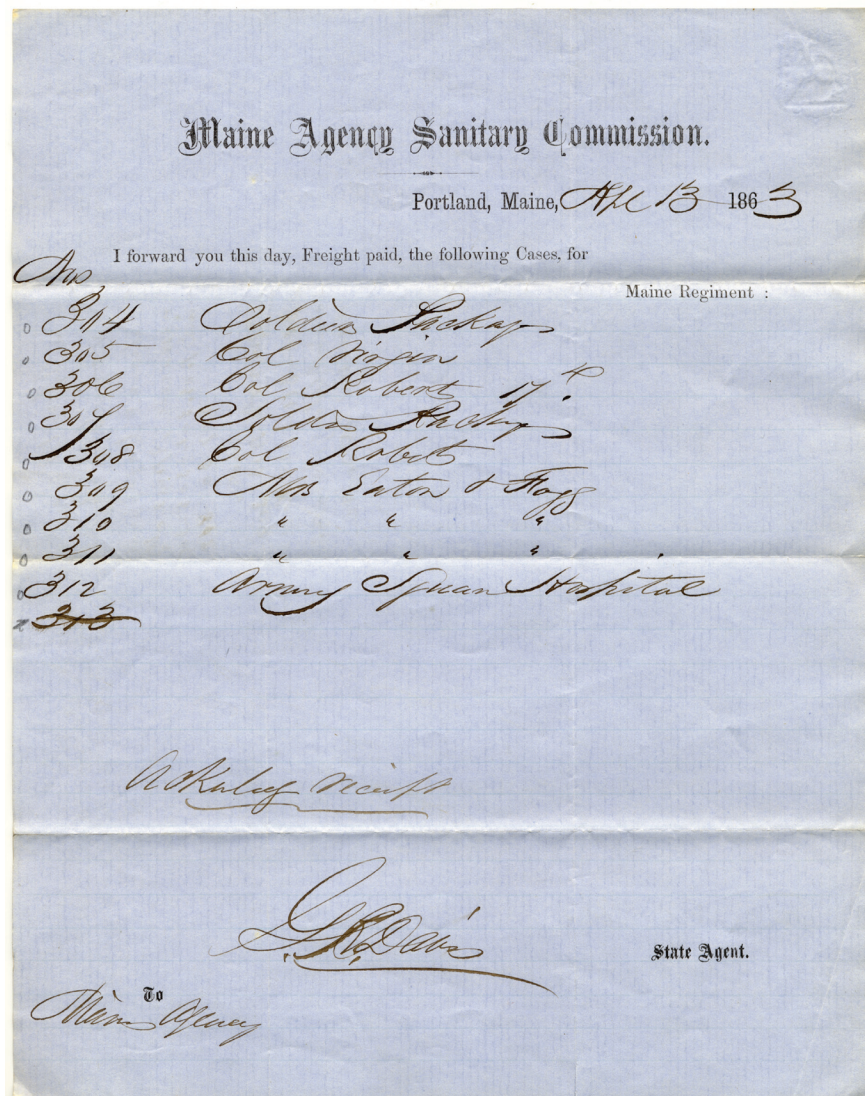 Maine Agency Sanitary Commission.
Portland, Maine, Apl 13 1863
I forward you this day, Freight paid, the following Cases, for
Nos
Maine Regiment :
304 Soldiers Packages
305 Col Virgin
306 Col Roberts 17.th
307 Soldiers Packages
308 Col Roberts
309 Mrs Eaton & Fogg
310 " " "
311 " " "
312 Army Square Hospital
313
G. R. Davis
State Agent.
To
Maine Agency